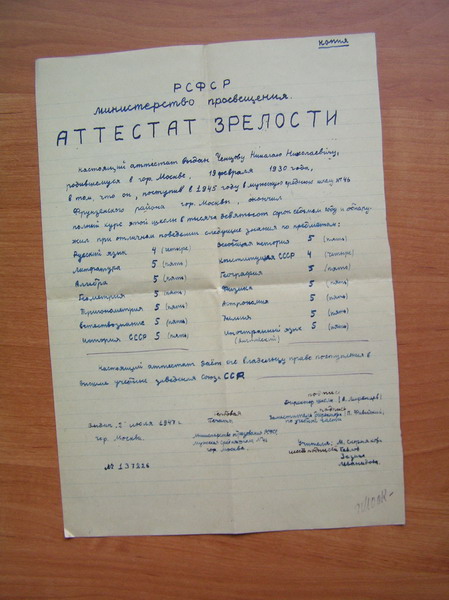 копия
РСФСР
министерство просвещения.
АТТЕСТАТ ЗРЕЛОСТИ
Настоящий аттестат выдан Ченцову Николаю Николаевичу,
родившемуся в гор. Москве, 19 февраля 1930 года,
в том, что он, поступив в 1945 году в мужскую среднюю школу № 46
Фрунзенского района гор. Москвы, окончил
полный курс этой школы в тысяча девятьсот сорок седьмом году и обнару-
жил при отличном поведении следующие знания по предметам:
Русский язык 4 (четыре)
Литература 5 (пять)
Алгебра 5 (пять)
Геометрия 5 (пять)
Тригонометрия 5 (пять)
Естествознание 5 (пять)
История СССР 5 (пять)
Всеобщая история 5 (пять)
Конституция СССР 4 (четыре)
География 5 (пять)
Физика 5 (пять)
Астрономия 5 (пять)
Химия 5 (пять)
Иностранный язык 5 (пять)
(английский)
Настоящий аттестат даёт его владельцу право поступления в
высшие учебные заведения Союза ССР.
Выдан 2 июля 1947 г.
гор. Москва.
№ 137226
гербовая
печать
Министерство просвещения РСФСР
мужская средняя школа № 46
гор. Москва.
подпись
Директор школы
подпись
Заместитель директора
по учебной части
Учителя: